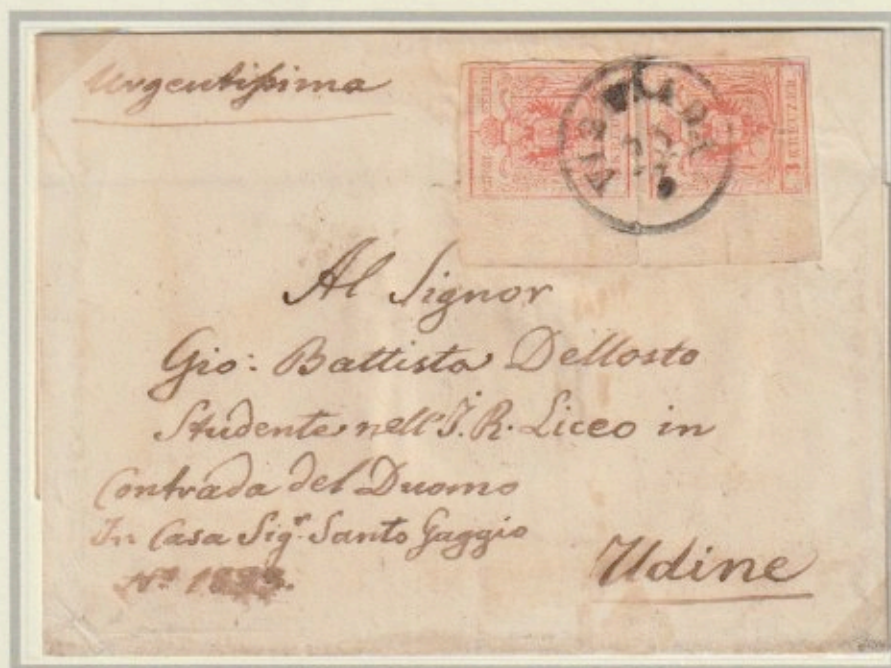 Urgentissima
3 KREUZER
VISINADA
Al Signor
Gio: Battista Dellosto
Studente nell'I. R. Liceo in
Contrada del Duomo
In Casa Sigr. Santo Gaggio
No.
Udine